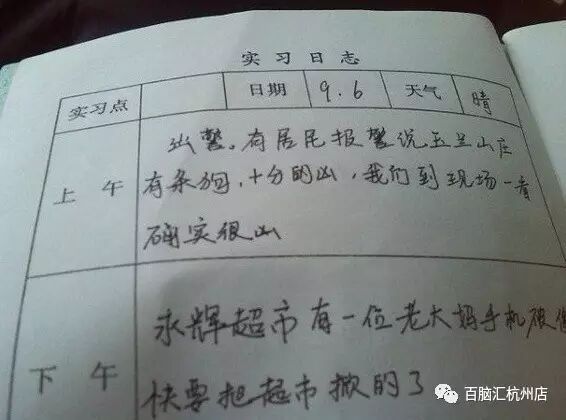 实习日志
实习点 日期 9.6 天气 晴
上午
出警。有居民报警说玉兰山庄
有条狗，十分的凶，我们到现场一看
确实很凶
下午
永辉超市有一位老大妈手机被偷
快要把超市掀的了
百脑汇杭州店